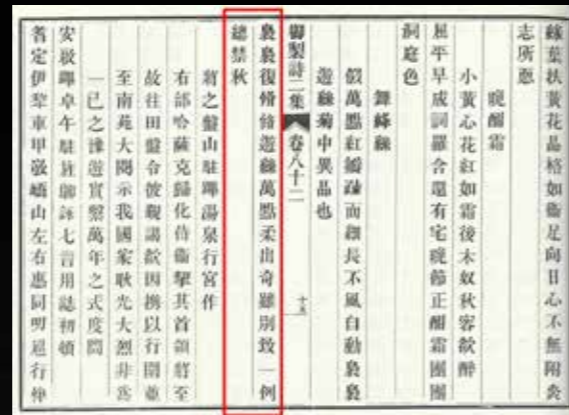 絲葉扶黃花品格如衞足向日心不無附炎
志所惡
晚酣霜
小黃心花紅如霜後木奴秋容欲醉
屈平早成詞羅含還有宅晚節正酣霜團團
洞庭色
舞絳絲
萬點紅瓣疎而細長不風自動裊裊
遊絲菊中異品也
御製詩二集 卷八十二 十五
裊裊復翛翛遊絲萬點柔出奇雖別致一例
總禁秋
將之盤山駐蹕湯泉行宮作
右部哈薩克歸化侍衞挈其首領將至
故往田盤令彼覲謁因攜以行圍並
至南苑大閱示我國家耿光大烈非爲
一已之豫遊實繫萬年之式度問
安啟蹕卓午駐旌聊詠七言用誌初頓
耆定伊犂車甲山左右惠同明巡行伸